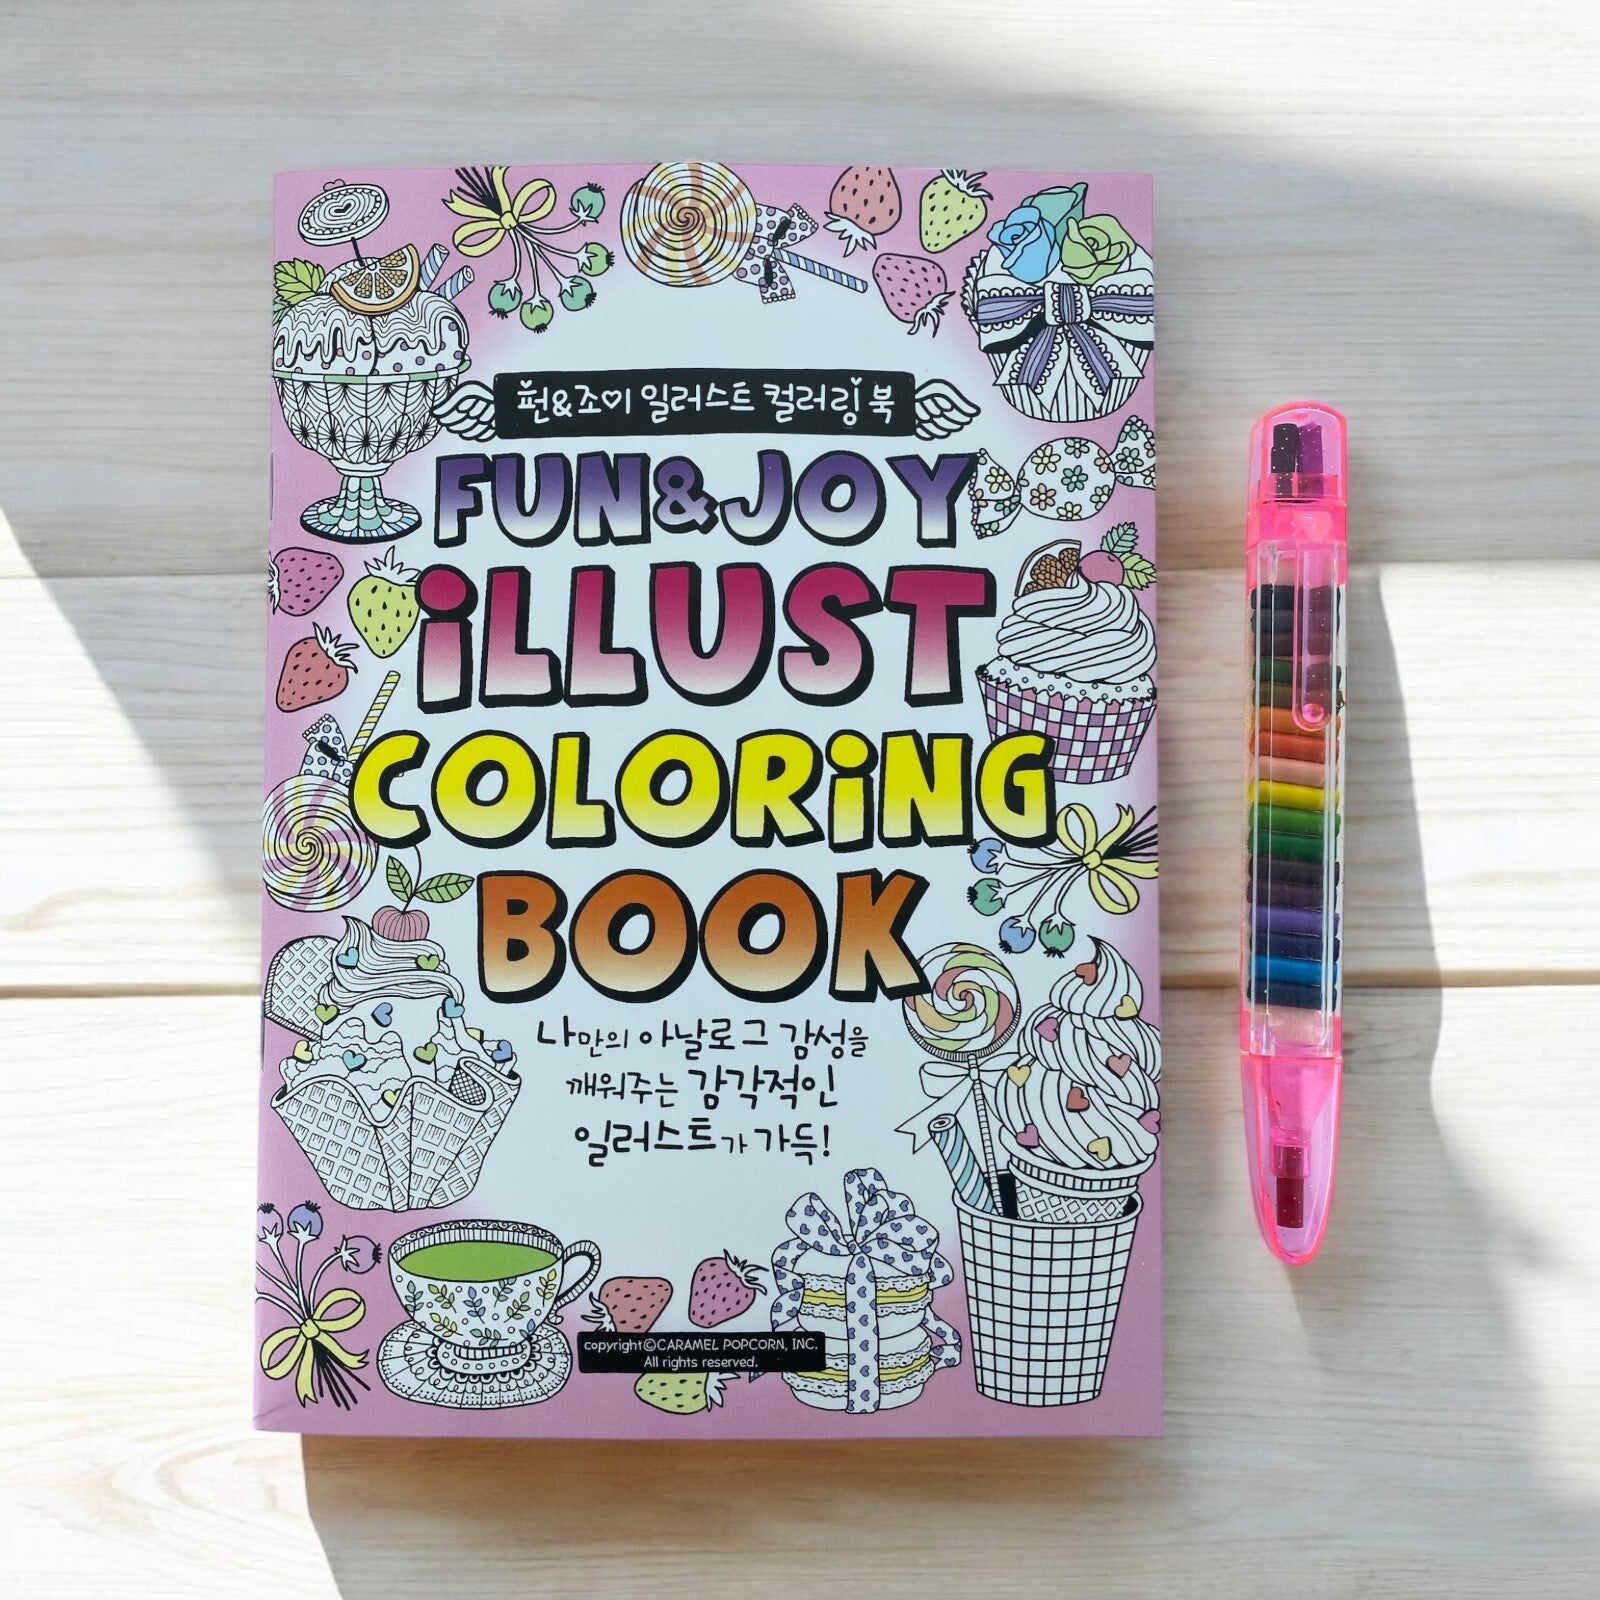 펀&조이 일러스트 컬러링 북
FUN&JOY
iLLUST
COLORiNG
BOOK
나만의 아날로그 감성을
깨워주는 감각적인
일러스트가 가득!
copyright©CARAMEL POPCORN, INC.
All rights reserved.